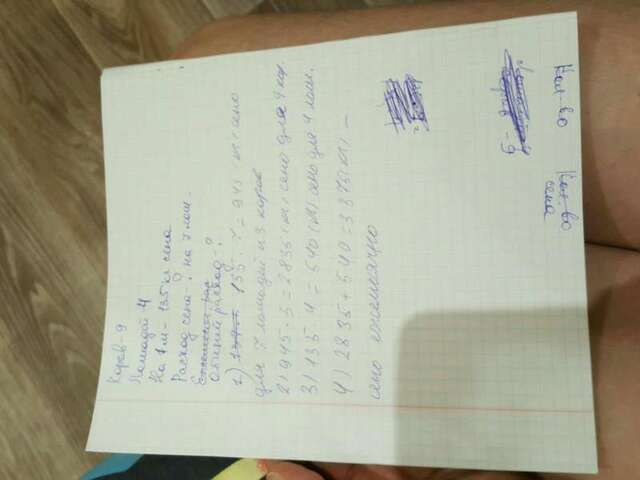 Коров-9
Лошадей-4
На 1м-135 кг сена
Расход сена-? на 7 лош.
Общий расход-?
1) 135·7=945(кг) сено
для 7 лошадей из коров
2) 945·3=2835(кг) сено для 9 кор.
3) 135·4=540(кг) сено для 4 лош.
4) 2835+540=3375(кг)-
сено ежемесячно
Кол-во
Кол-во
сена